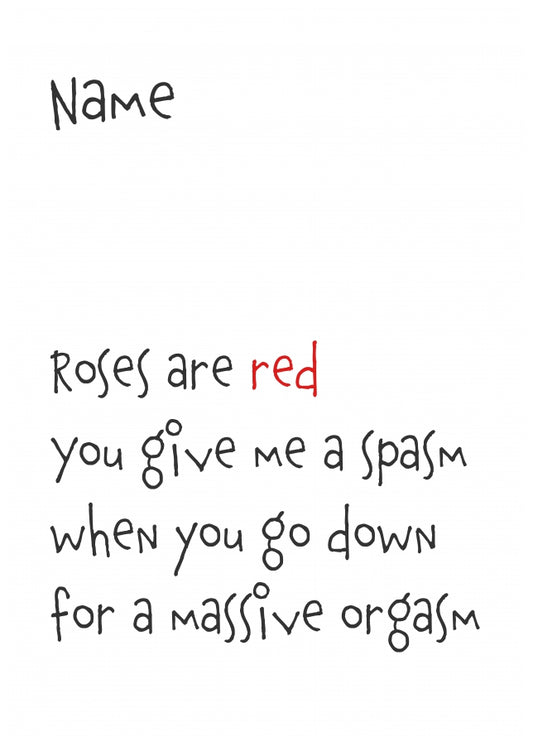 Name
Roses are red
you give me a spasm
when you go down
for a massive orgasm